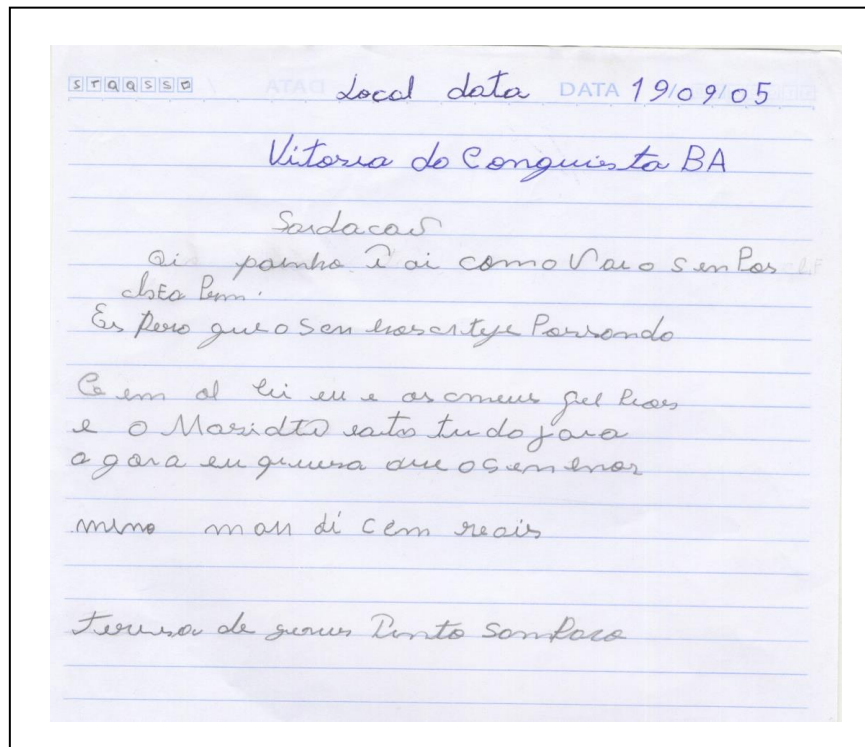 S T Q Q S S D Local data DATA 19/09/05
Vitoria do Conquista BA
Saudacois
Oi painho i ai como Vai o senhor
Es pero que o sen hor esteje Passando
Bem al li eu e os meus fil hos
e o Marido esta tudo joia
agora eu queria que o sen hor
mimo man di cem reais
Teresa de Jesus Pinto Sampaio